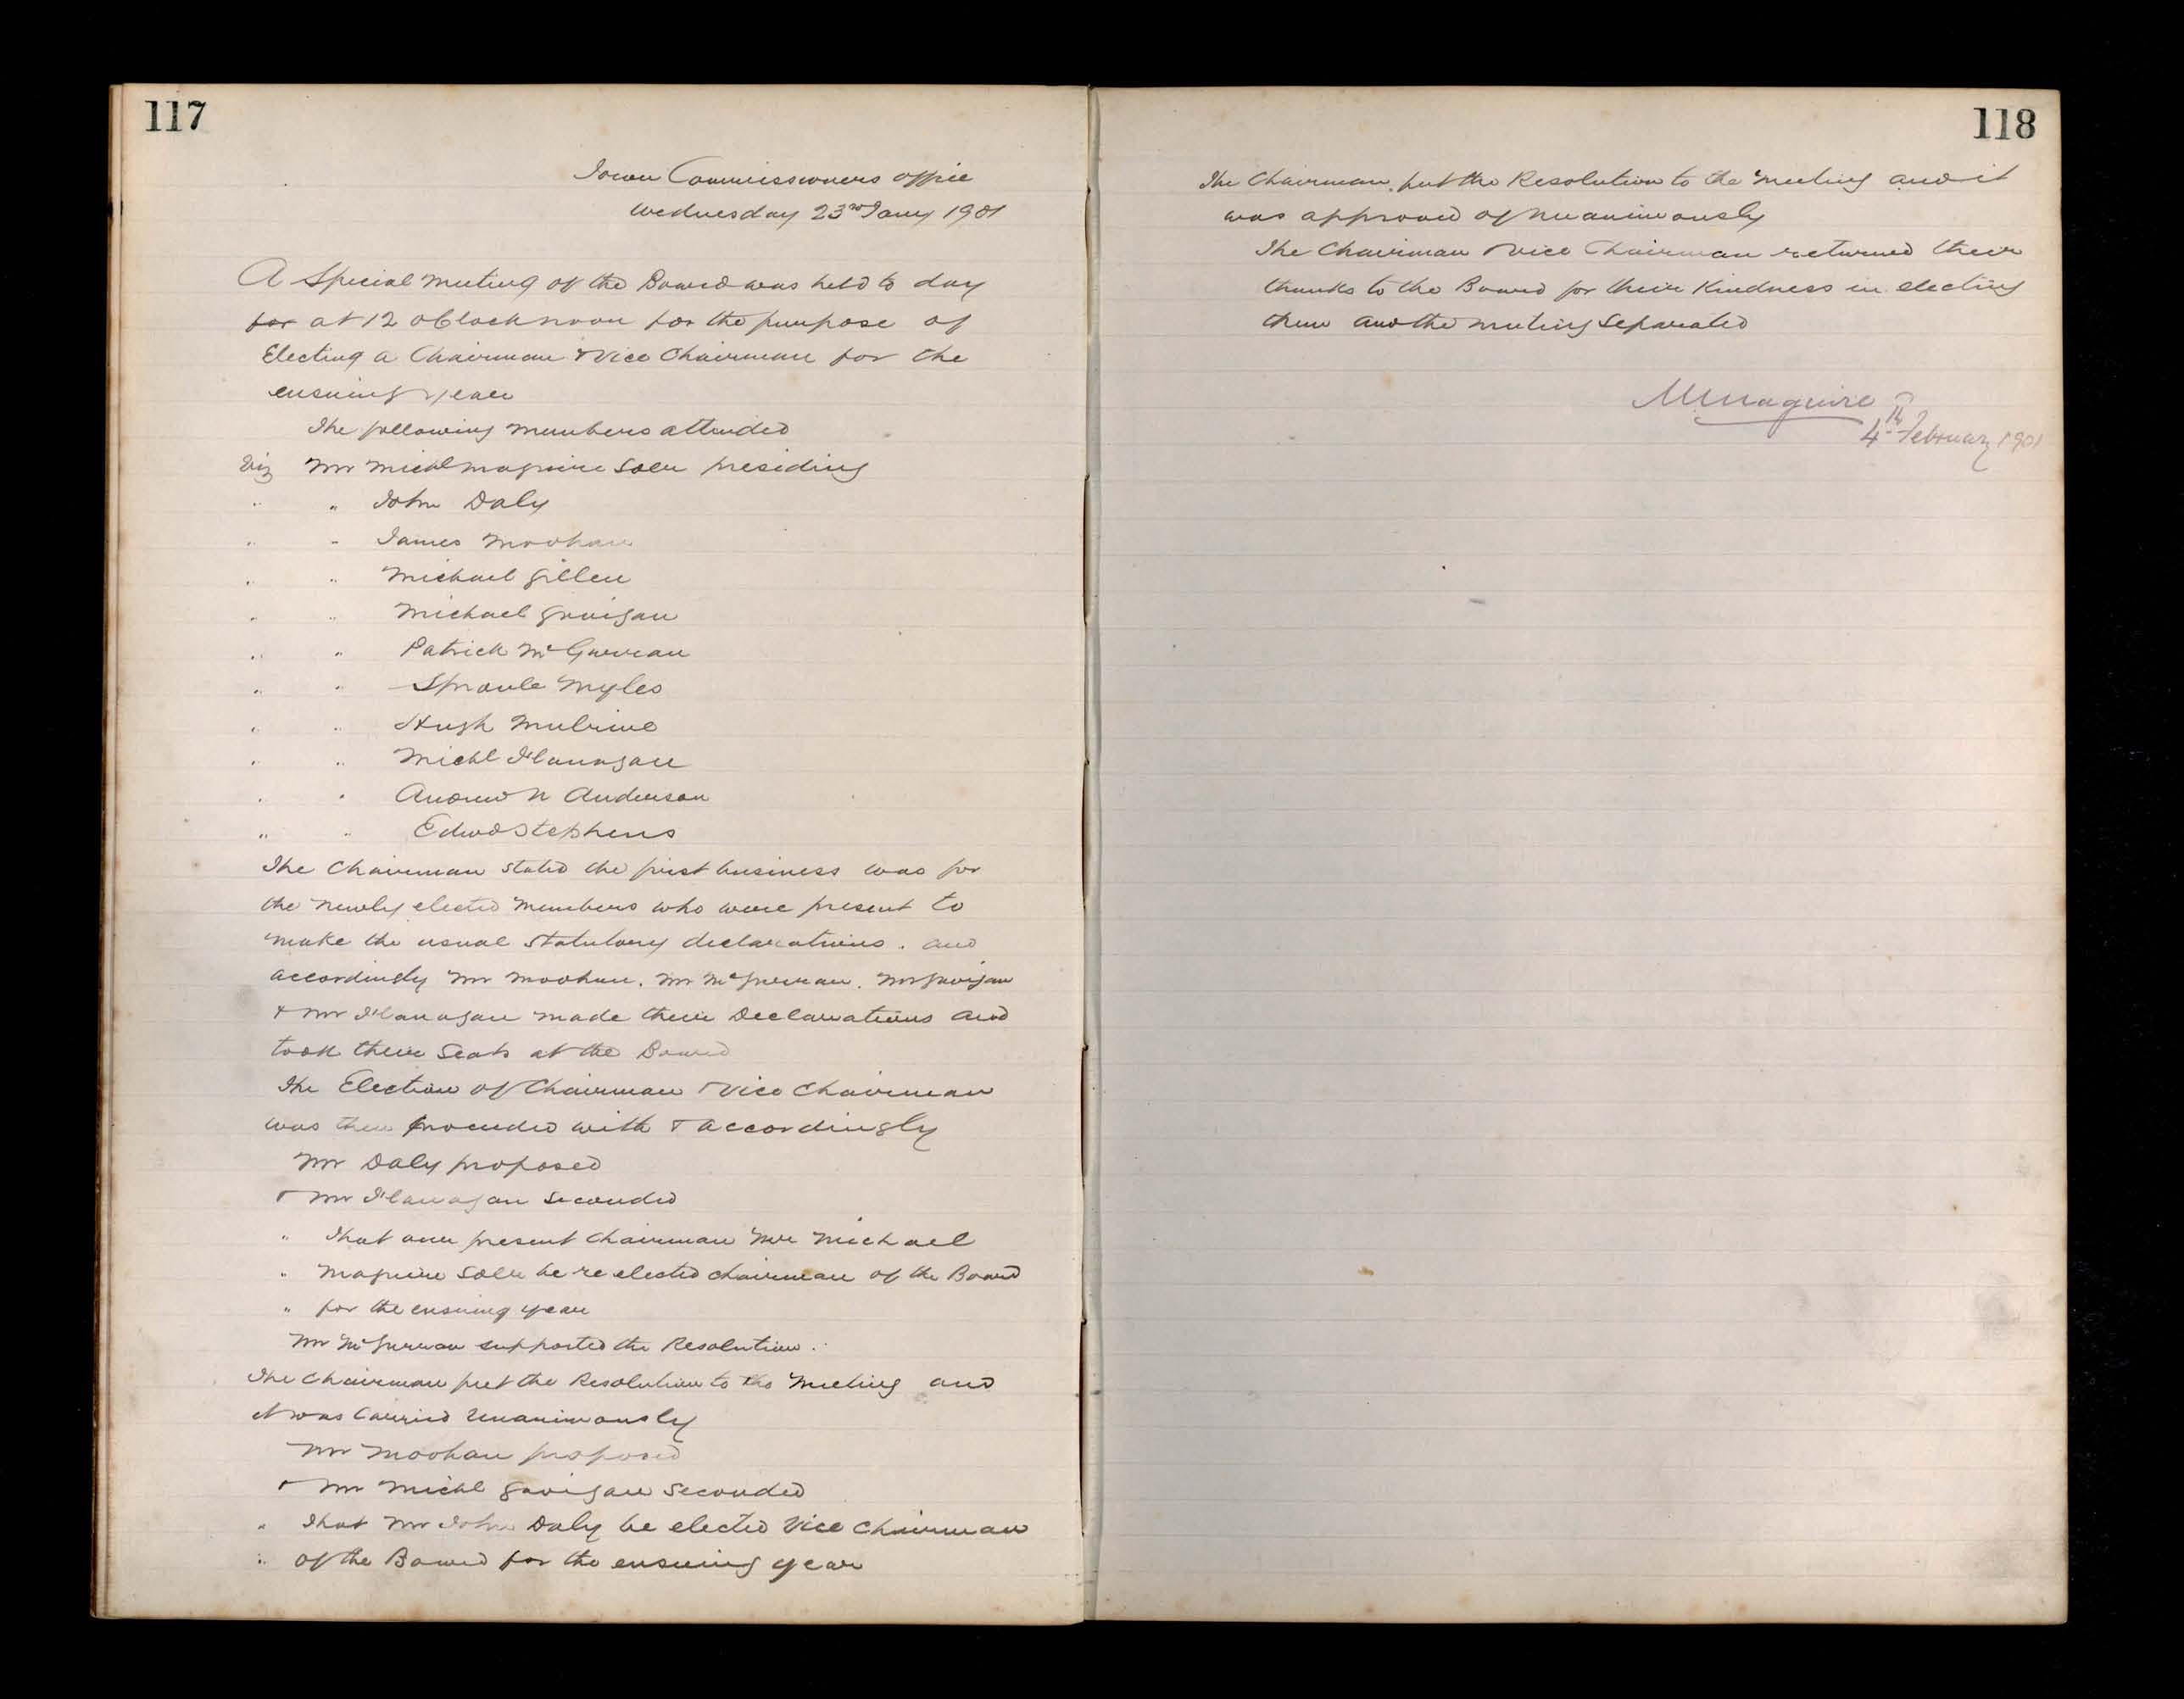 117
Town Commissioners office
Wednesday 23rd Jany 1901
A Special meeting of the Board was held to day
for at 12 oClock noon for the purpose of
Electing a Chairman & Vice Chairman for the
ensuing year
The following members attended
Viz Mr Michl Maguire Solr presiding
" " John Daly
" " James Moohan
" " Michael Gillen
" " Michael Gavigan
" " Patrick McGurran
" " Sproule Myles
" " Hugh Mulrine
" " Michl Flanagan
" " Andrew N Anderson
" " Edwd Stephens
The Chairman stated the first business was for
the newly elected members who were present to
make the usual Statutory declarations. and
accordingly Mr Moohan. Mr McGurran. Mr Gavigan
& Mr Flanagan made their Declarations and
took their Seats at the Board
The Election of Chairman & Vice Chairman
was then proceeded with & accordingly
Mr Daly proposed
& Mr Flanagan seconded
" That our present Chairman Mr Michael
" Maguire Solr be re elected chairman of the Board
" for the ensuing year
Mr McGurran supported the Resolution.
The Chairman put the Resolution to the Meeting and
it was Carried Unanimously
Mr Moohan proposed
& Mr Michl Gavigan seconded
" That Mr John Daly be elected Vice Chairman
" of the Board for the ensuing year
118
The Chairman put the Resolution to the Meeting and it
was approved of Unanimously
The Chairman & Vice Chairman returned their
thanks to the Board for their Kindness in electing
them and the meeting Separated
M Maguire
4th February 1901